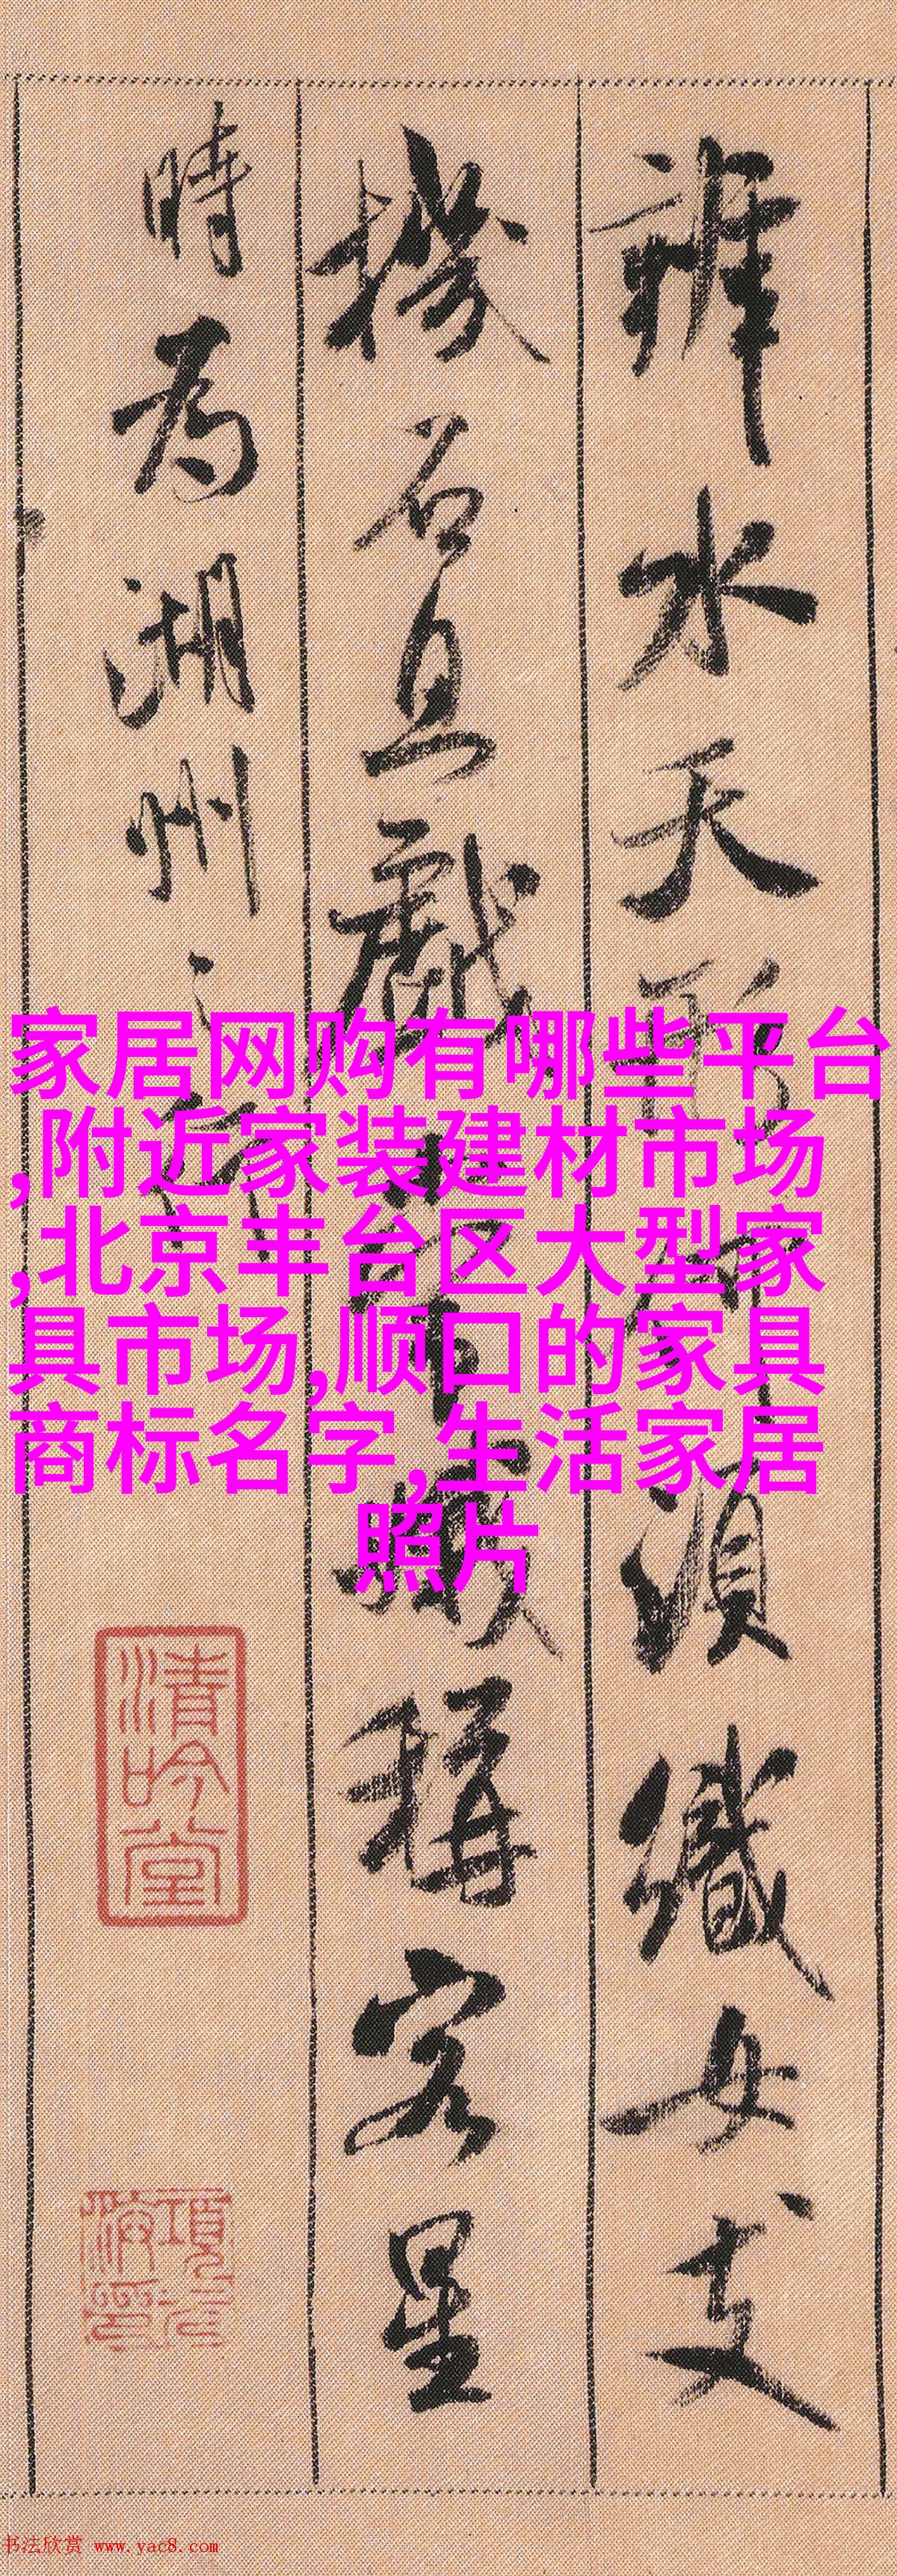 辨水天形何須織女支
機石且戲常娥稱客星
時為湖州之行
家居网购有哪些平台
,附近家装建材市场
,北京丰台区大型家
具市场,顺口的家具
商标名字,生活家居
照片
清吟堂
书法欣赏 www.yac8.com